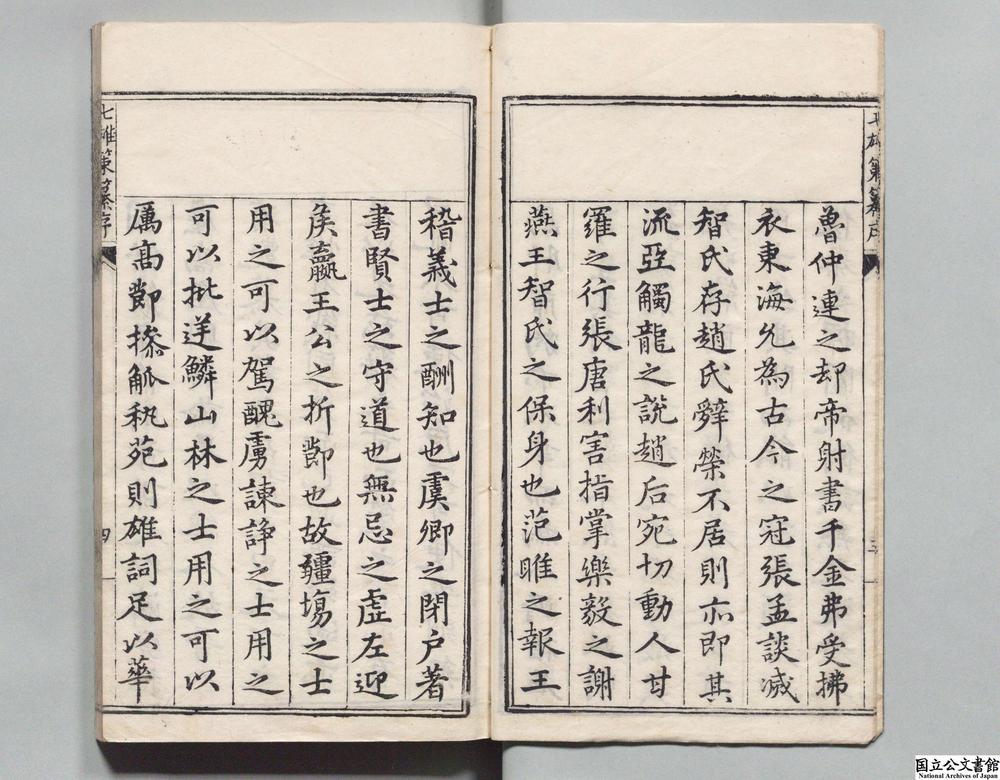 魯仲連之却帝射書千金弗受拂
衣東海允為古今之冠張孟談滅
智氏存趙氏辭榮不居則亦即其
流亞觸龍之說趙后宛切動人甘
羅之行張唐利害指掌樂毅之謝
燕王智氏之保身也范睢之報王
稽義士之酬知也虞卿之閉户著
書賢士之守道也無忌之虛左迎
矦嬴王公之折節也故疆塲之士
用之可以駕醜虜諫諍之士用之
可以批逆鱗山林之士用之可以
厲高節摻觚秇苑則雄詞足以華
七雄策纂序
三
七雄策纂序
四
国立公文書館
National Archives of Japan